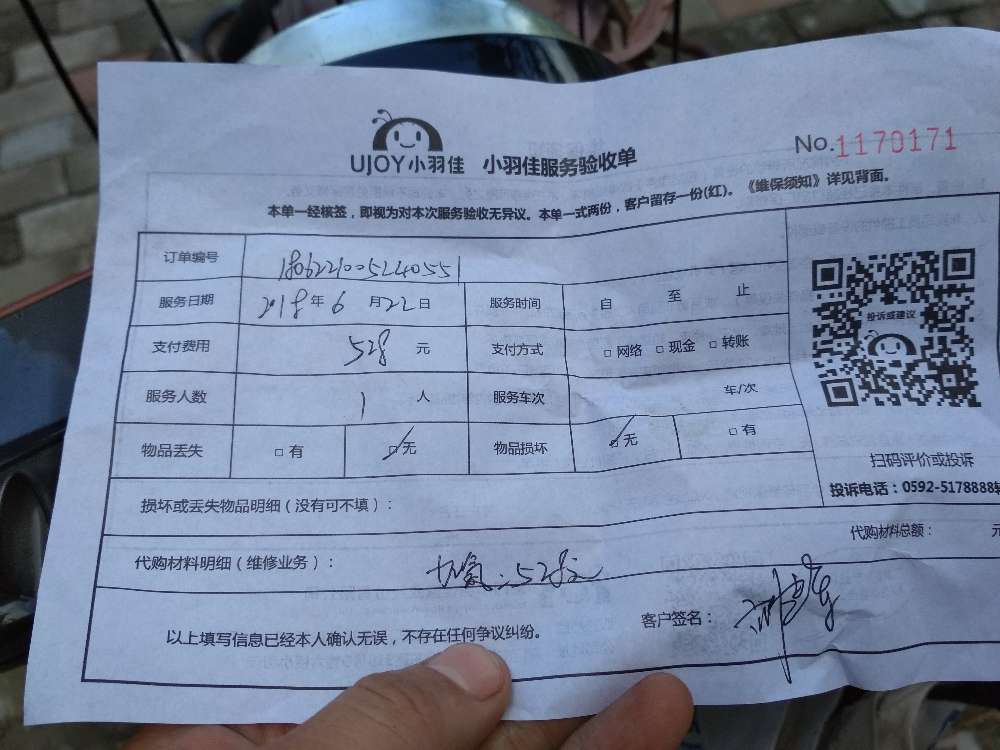 UJOY小羽佳 小羽佳服务验收单
No.1170171
本单一经核签，即视为对本次服务验收无异议。本单一式两份，客户留存一份(红)。《维保须知》详见背面。
订单编号 1806221005240551
服务日期 2018年6月22日 服务时间 自 至 止
支付费用 528 元 支付方式 □网络 □现金 □转账
服务人数 1 人 服务车次 车/次
物品丢失 □有 □无 物品损坏 □无 □有
投诉或建议
扫码评价或投诉
投诉电话：0592-5178888转
损坏或丢失物品明细（没有可不填）：
代购材料总额： 元
代购材料明细（维修业务）： 加氟：528元
以上填写信息已经本人确认无误，不存在任何争议纠纷。
客户签名：